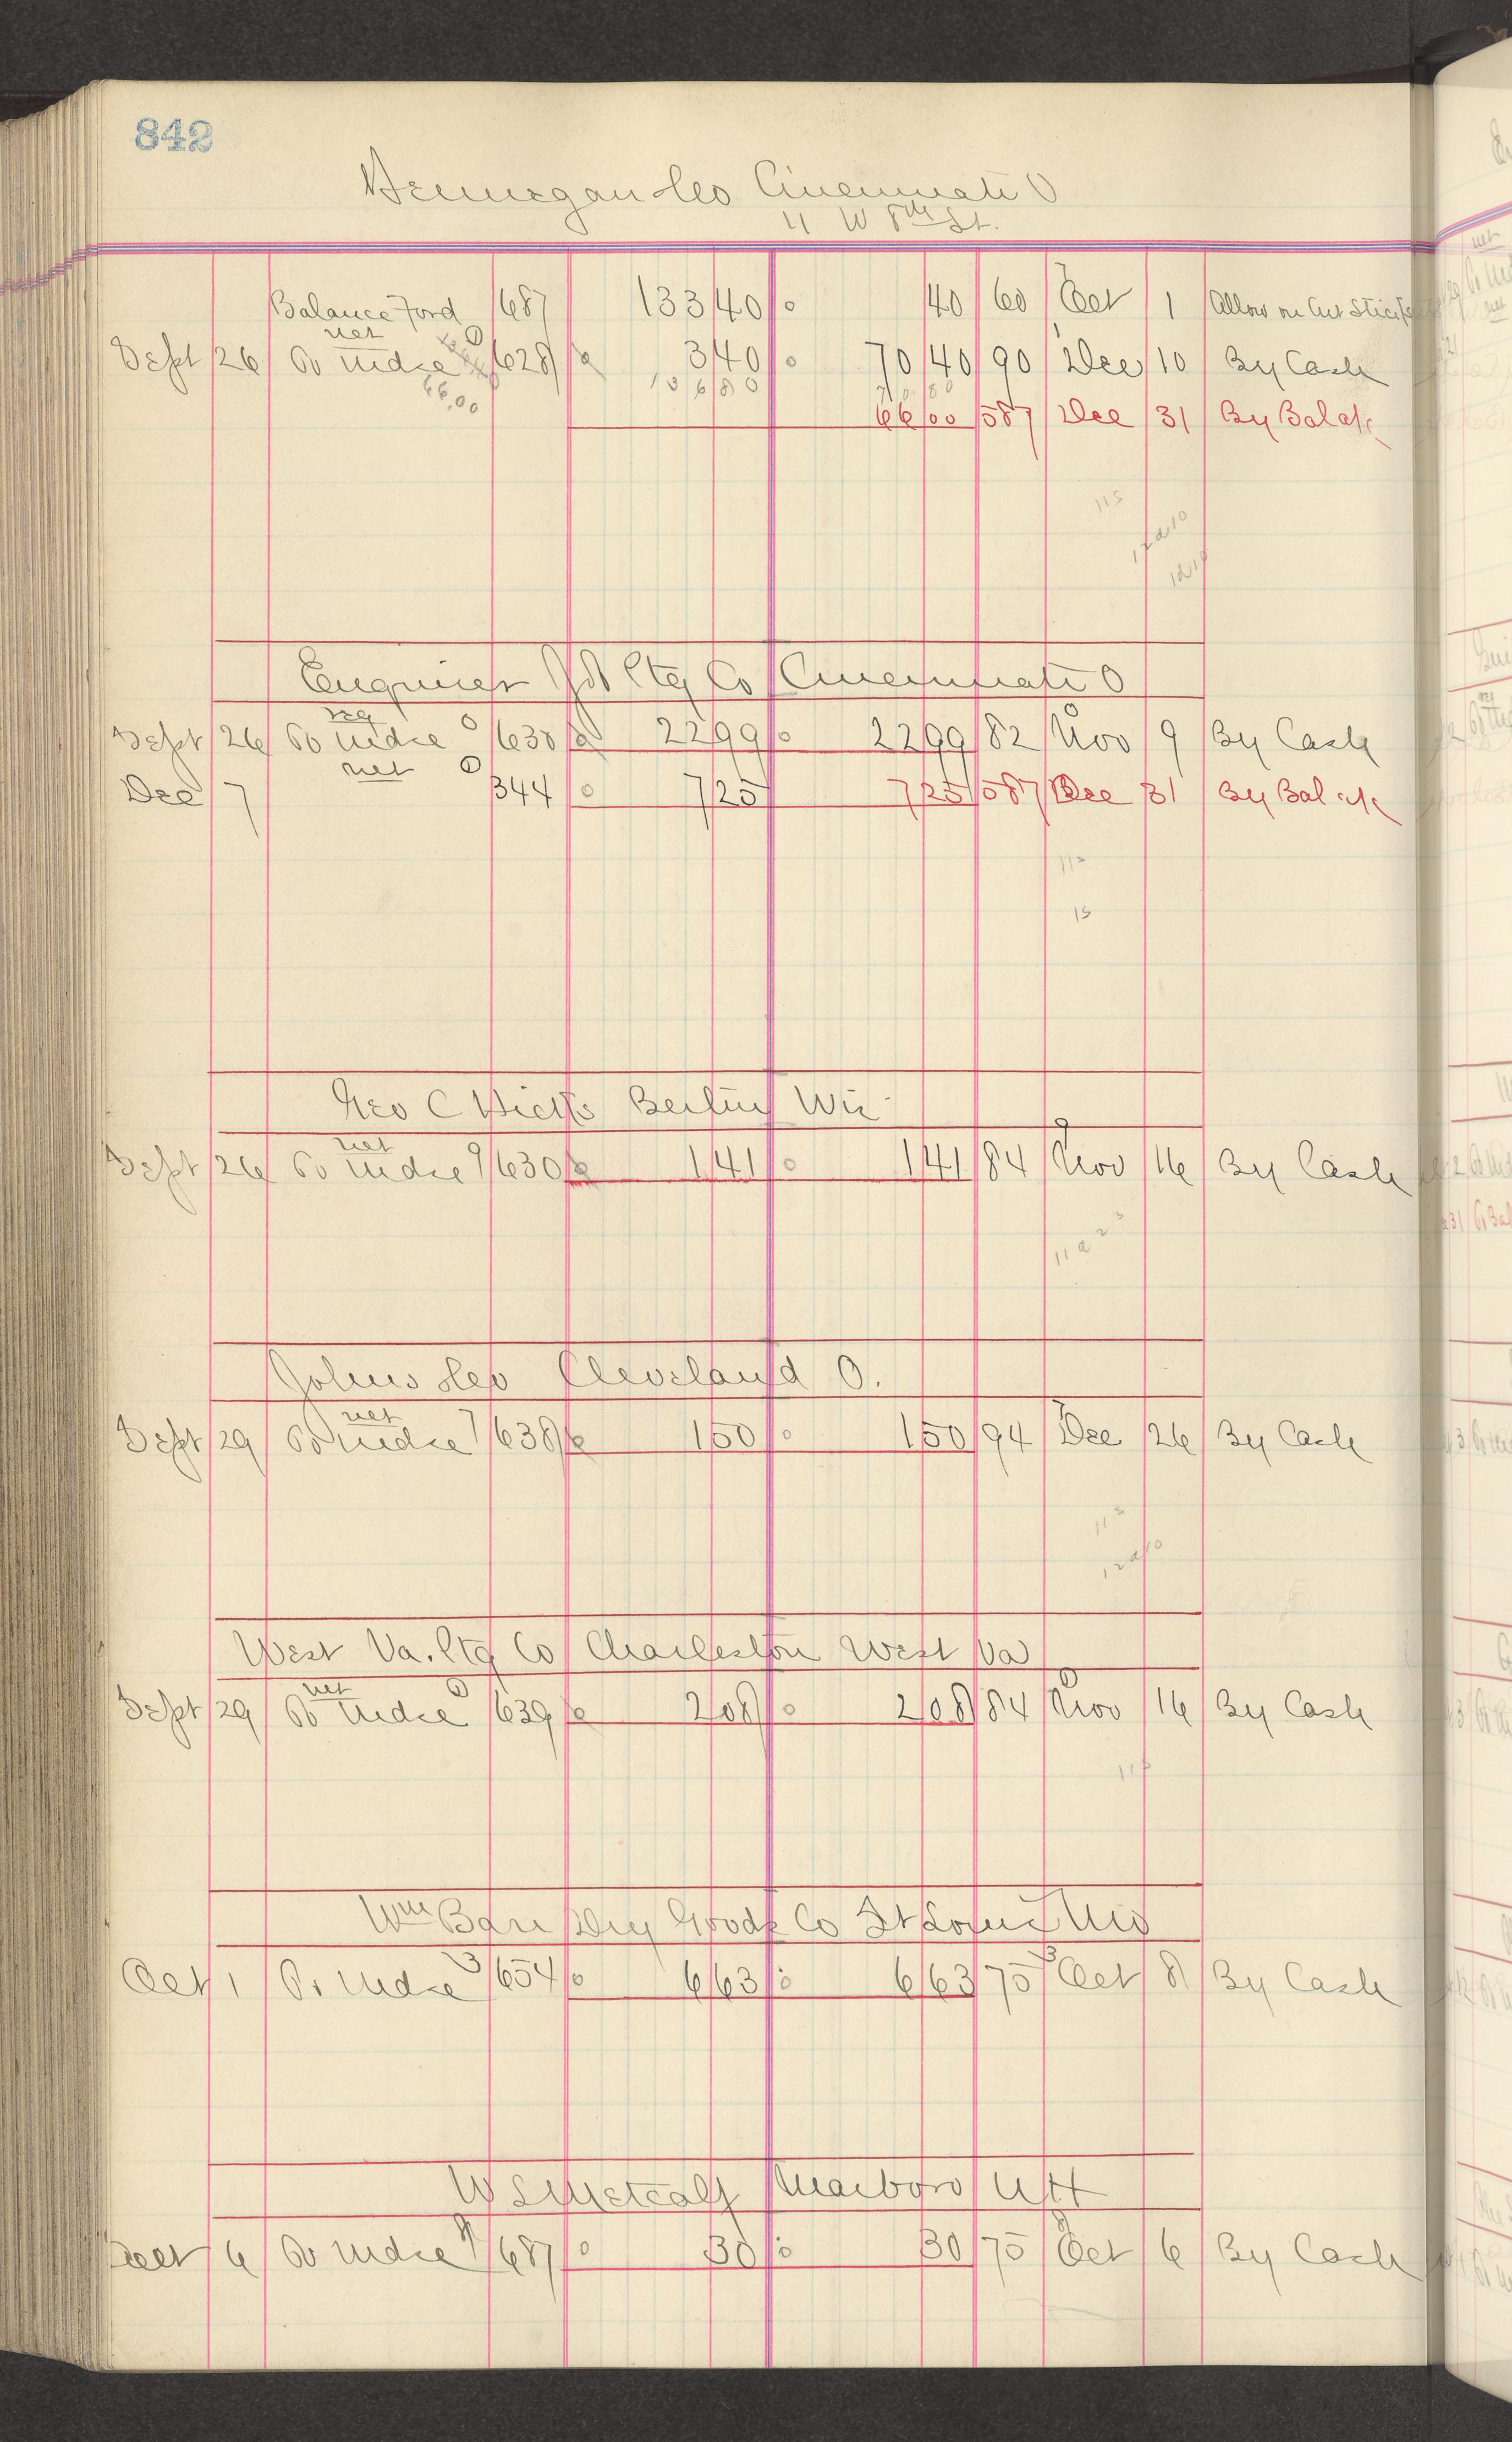 842
Co Cincinnati O
4 W 8th St.
Balance Ford 687 133 40 40 60 Oct 1 Allow on Cut
net
Sept 26 To Mdse 628 3 40 70 40 90 Dec 10 By Cash
66.00 136 80
66 00 587 Dec 31 By Bal
115
1210
Enquirer Job Ptg Co Cincinnati O
Sept 26 To Mdse 630 22 99 22 99 82 Nov 9 By Cash
net
Dec 7 344 7 25 7 25 587 Dec 31 By Bal
15
Geo C Hicks Berlin Wis
net
Sept 26 To Mdse 630 1 41 1 41 84 Nov 16 By Cash
Cleveland O.
net
Sept 29 To Mdse 638 1 50 1 50 94 Dec 26 By Cash
West Va. Ptg Co Charleston West Va
net
Sept 29 To Mdse 639 2 08 2 08 84 Nov 16 By Cash
Wm Barr Dry Goods Co St Louis Mo
Oct 1 To Mdse 654 6 63 6 63 75 Oct 8 By Cash
W S Metcalf Marlboro N H
Oct 6 To Mdse 687 30 30 75 Oct 6 By Cash